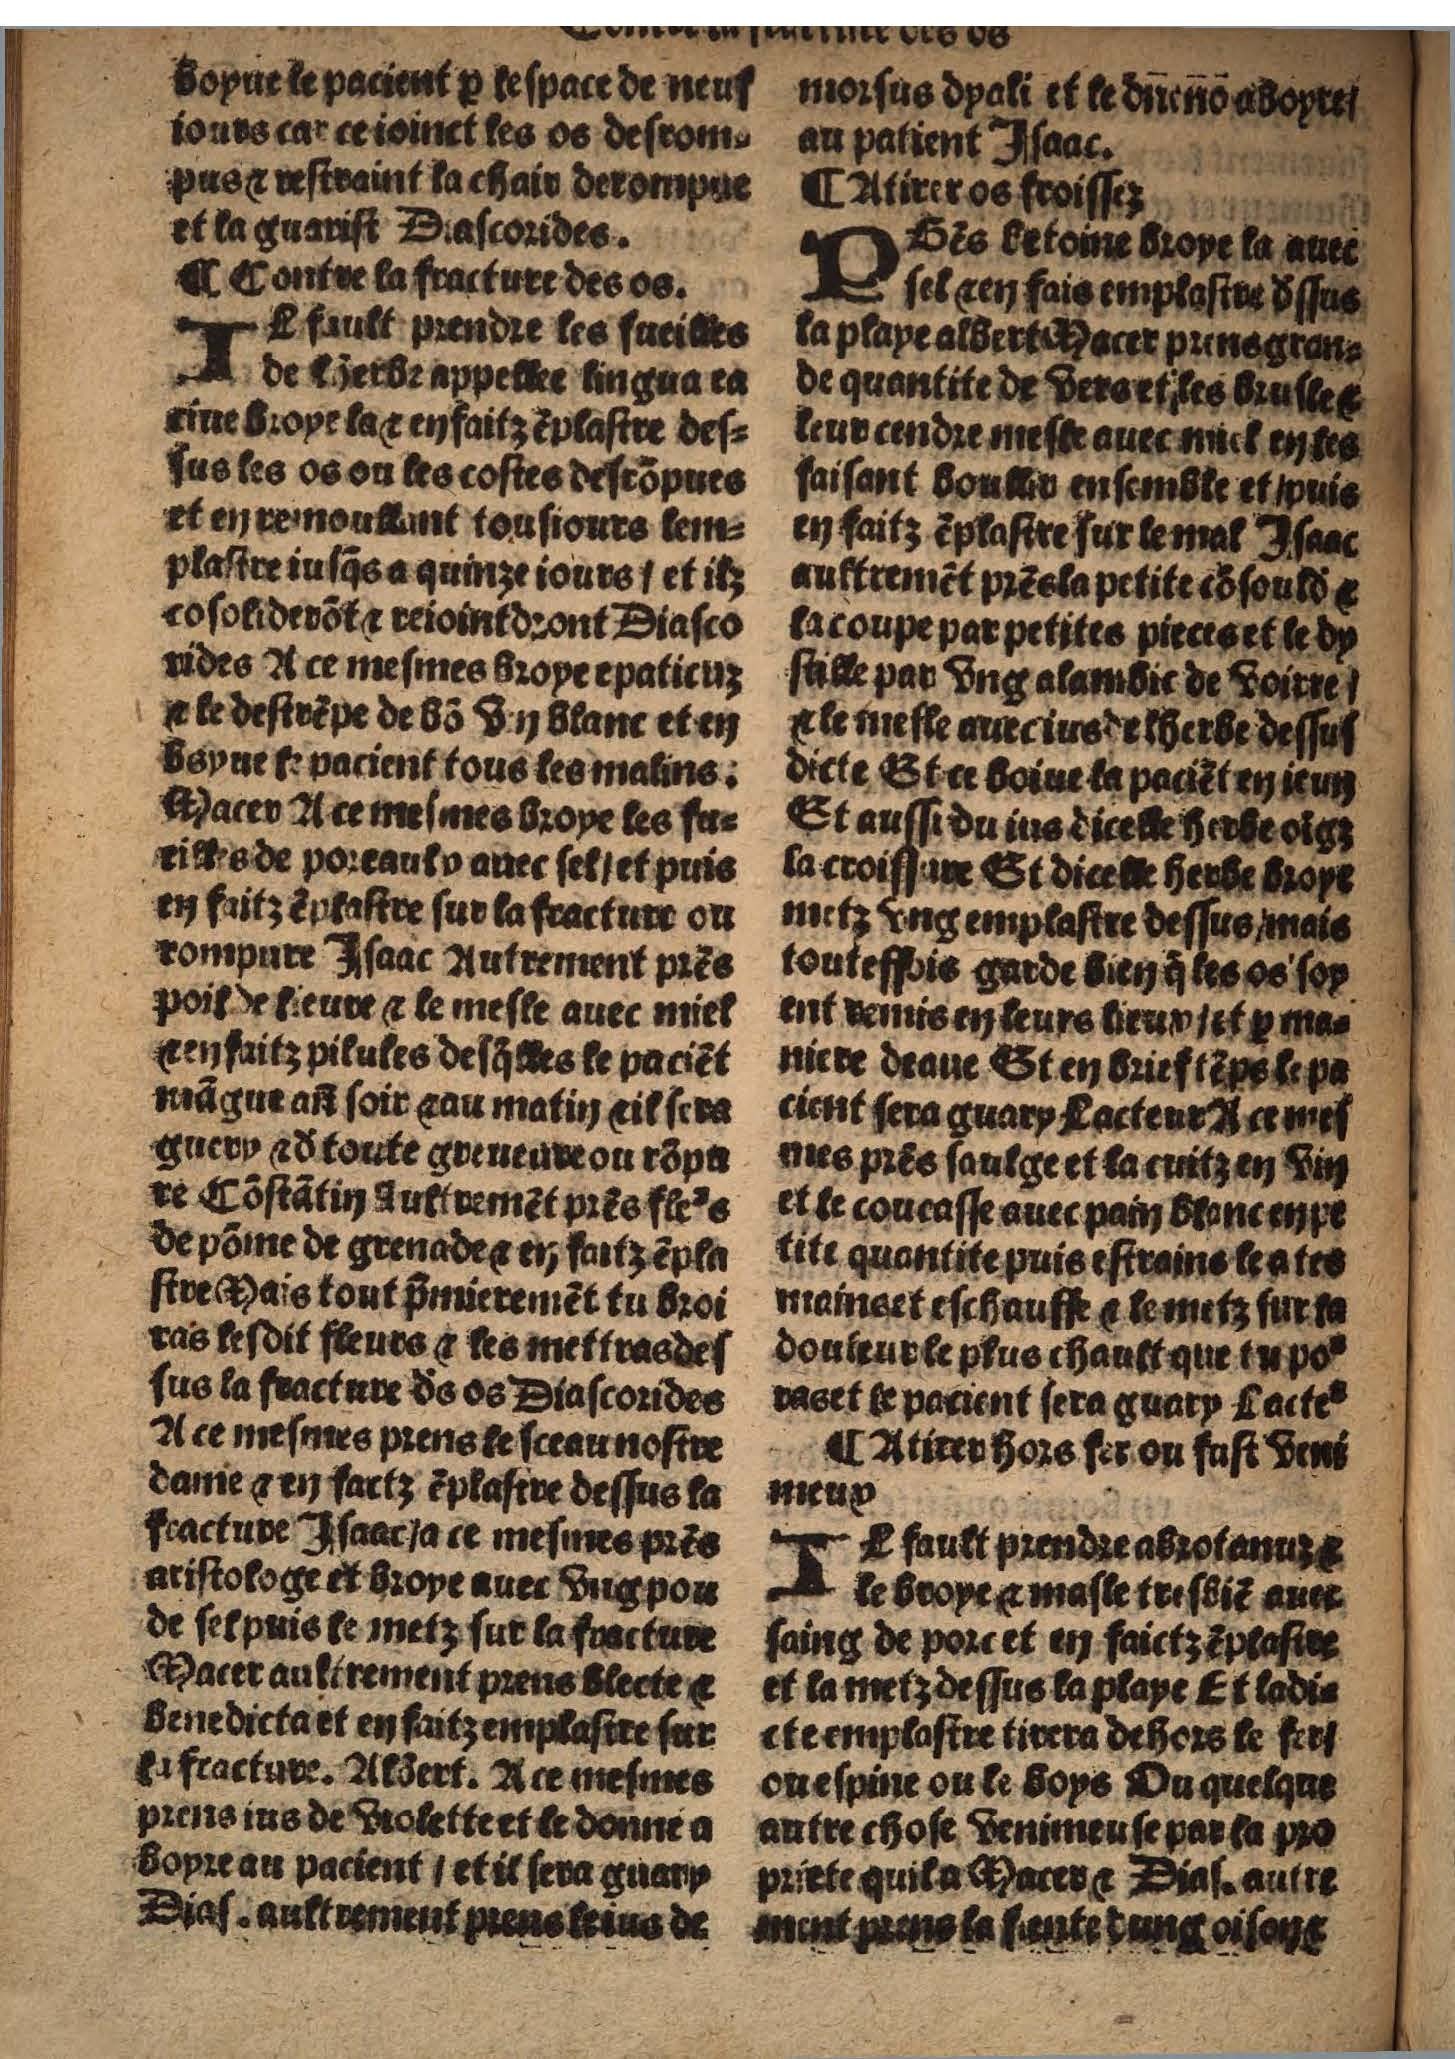 Contre la fracture des os
boyue le pacient ꝑ lespace de neuf
iours car ce ioinct les os desrom⸗
pus ⁊ restraint la chair derompue
et la guarist Diascorides.
¶ Contre la fracture des os.
IL fault prendre les fueilles
de lherbe appellee lingua ca
nine broye la ⁊ en faitz ēplastre des⸗
sus les os ou les costes desrōpues
et en remoullant tousiours lem⸗
plastre iusq̄s a quinze iours / et ilz
cosoliderōt ⁊ reioindront Diasco
rides A ce mesmes broye epaticuz
⁊ le destrēpe de bō vin blanc et en
boyue le pacient tous les matins:
Macer A ce mesmes broye les fu⸗
eilles de poreaulx auec sel / et puis
en faitz ēplastre sur la fracture ou
rompure Isaac Autrement prēs
poil de lieure ⁊ le mesle auec miel
⁊ en faitz pilules desq̄lles le paciēt
māgue au soir ⁊ au matin ⁊ il sera
guery ⁊ d̄ toute greueure ou rōpu
re Cōstātin Aultremēt prēs fleᵘʳs
de pōme de grenade ⁊ en faitz ēpla
stre Mais tout p̄mieremēt tu broi
ras lesdit fleurs ⁊ les mettras des
sus la fracture d̄s os Diascorides
A ce mesmes prens le sceau nostre
dame ⁊ en faictz ēplastre dessus la
fracture Isaac / a ce mesmes prēs
aristologe et broye auec vng pou
de sel puis le metz sur la fracture
Macer aultrement prens blecte ⁊
benedicta et en faitz emplastre sur
la fracture. Albert. A ce mesmes
prens ius de violette et le donne a
boyre au pacient / et il sera guary
Dias. aultrement prens le ius de
morsus dyali et le a boyre /
au patient Isaac.
¶ A tirer os froissez
PRēs betoine broye la auec
sel ⁊ en fais emplastre d̄ssus
la playe albert Macer prens gran⸗
de quantite de vers et les brusle ⁊
leur cendre mesle auec miel en les
faisant boullir ensemble et / puis
en faitz ēplastre sur le mal Isaac
aultremēt prēs la petite cōsould̄ ⁊
la coupe par petites pieces et le dy
stille par vng alambic de voirre /
⁊ le mesle auec ius de lherbe dessus
dicte Et ce boiue la paciēt en ieun
Et aussi du ius dicelle herbe oīgz
la croissure Et dicelle herbe broye
metz vng emplastre dessus / mais
touteffois garde bien q̄ les os soy
ent remis en leurs lieux / et ꝑ ma⸗
niere deaue Et en brief tēps le pa
cient sera guary Lacteur A ce mes
mes prēs saulge et la cuitz en vin
et le coucasse auec pain blanc en pe
tite quantite puis estrains le a tes
mains et eschauffe ⁊ le metz sur la
douleur le plus chault que tu poᵘʳ
ras et le pacient sera guary Lacteᵘʳ
¶ A tirer hors fer ou fust veni
meux
IL fault prendre abrotanuz ⁊
le broye ⁊ masle tresbiē auec
saing de porc et en faictz ēplastre
et la metz dessus la playe Et ladi⸗
cte emplastre tirera dehors le fer /
ou espine ou le boys Ou quelque
autre chose venimeuse par la pro
priete quil a Macer ⁊ Dias. autre
ment prens la fiente dung oison ⁊